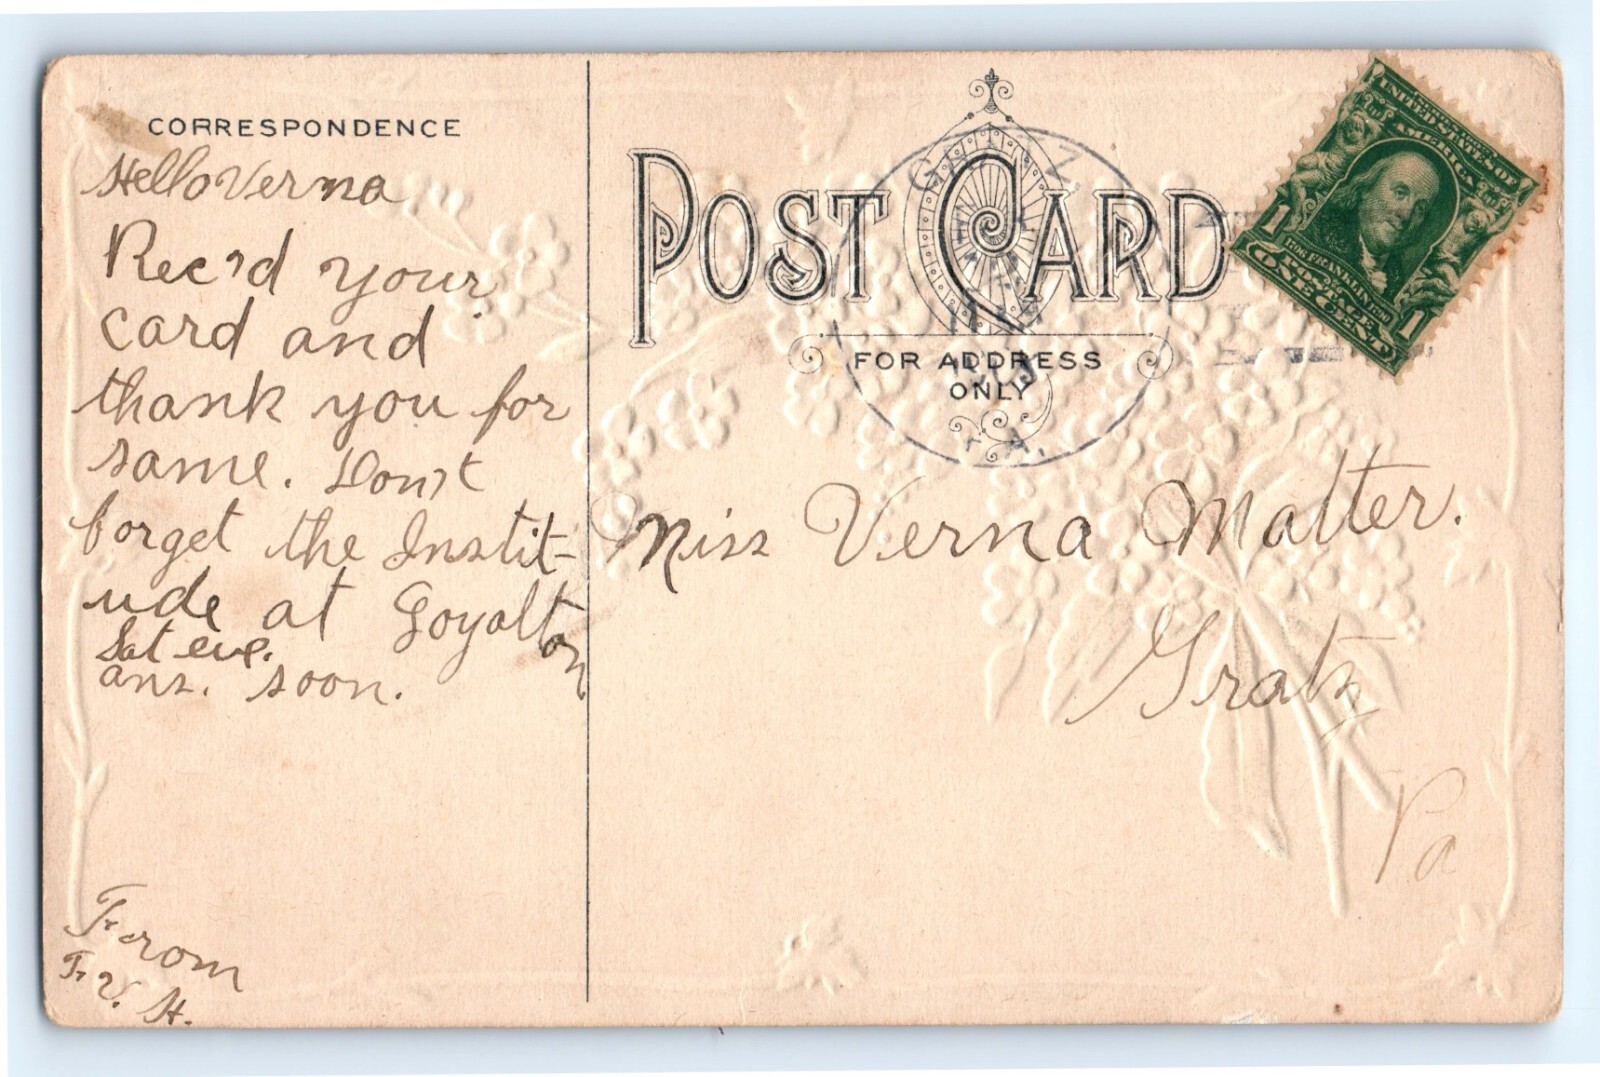 CORRESPONDENCE
Hello Verna
Rec'd your
card and
thank you for
same. Don't
forget the Instit-
ude at Loyalton
Sat eve.
ans. soon.
From
F. V. H.
POST CARD
FOR ADDRESS
ONLY
GRATZ
PA.
UNITED STATES OF
AMERICA
1706 FRANKLIN 1790
POSTAGE
1 ONE CENT 1
Miss Verna Matter.
Gratz
Pa